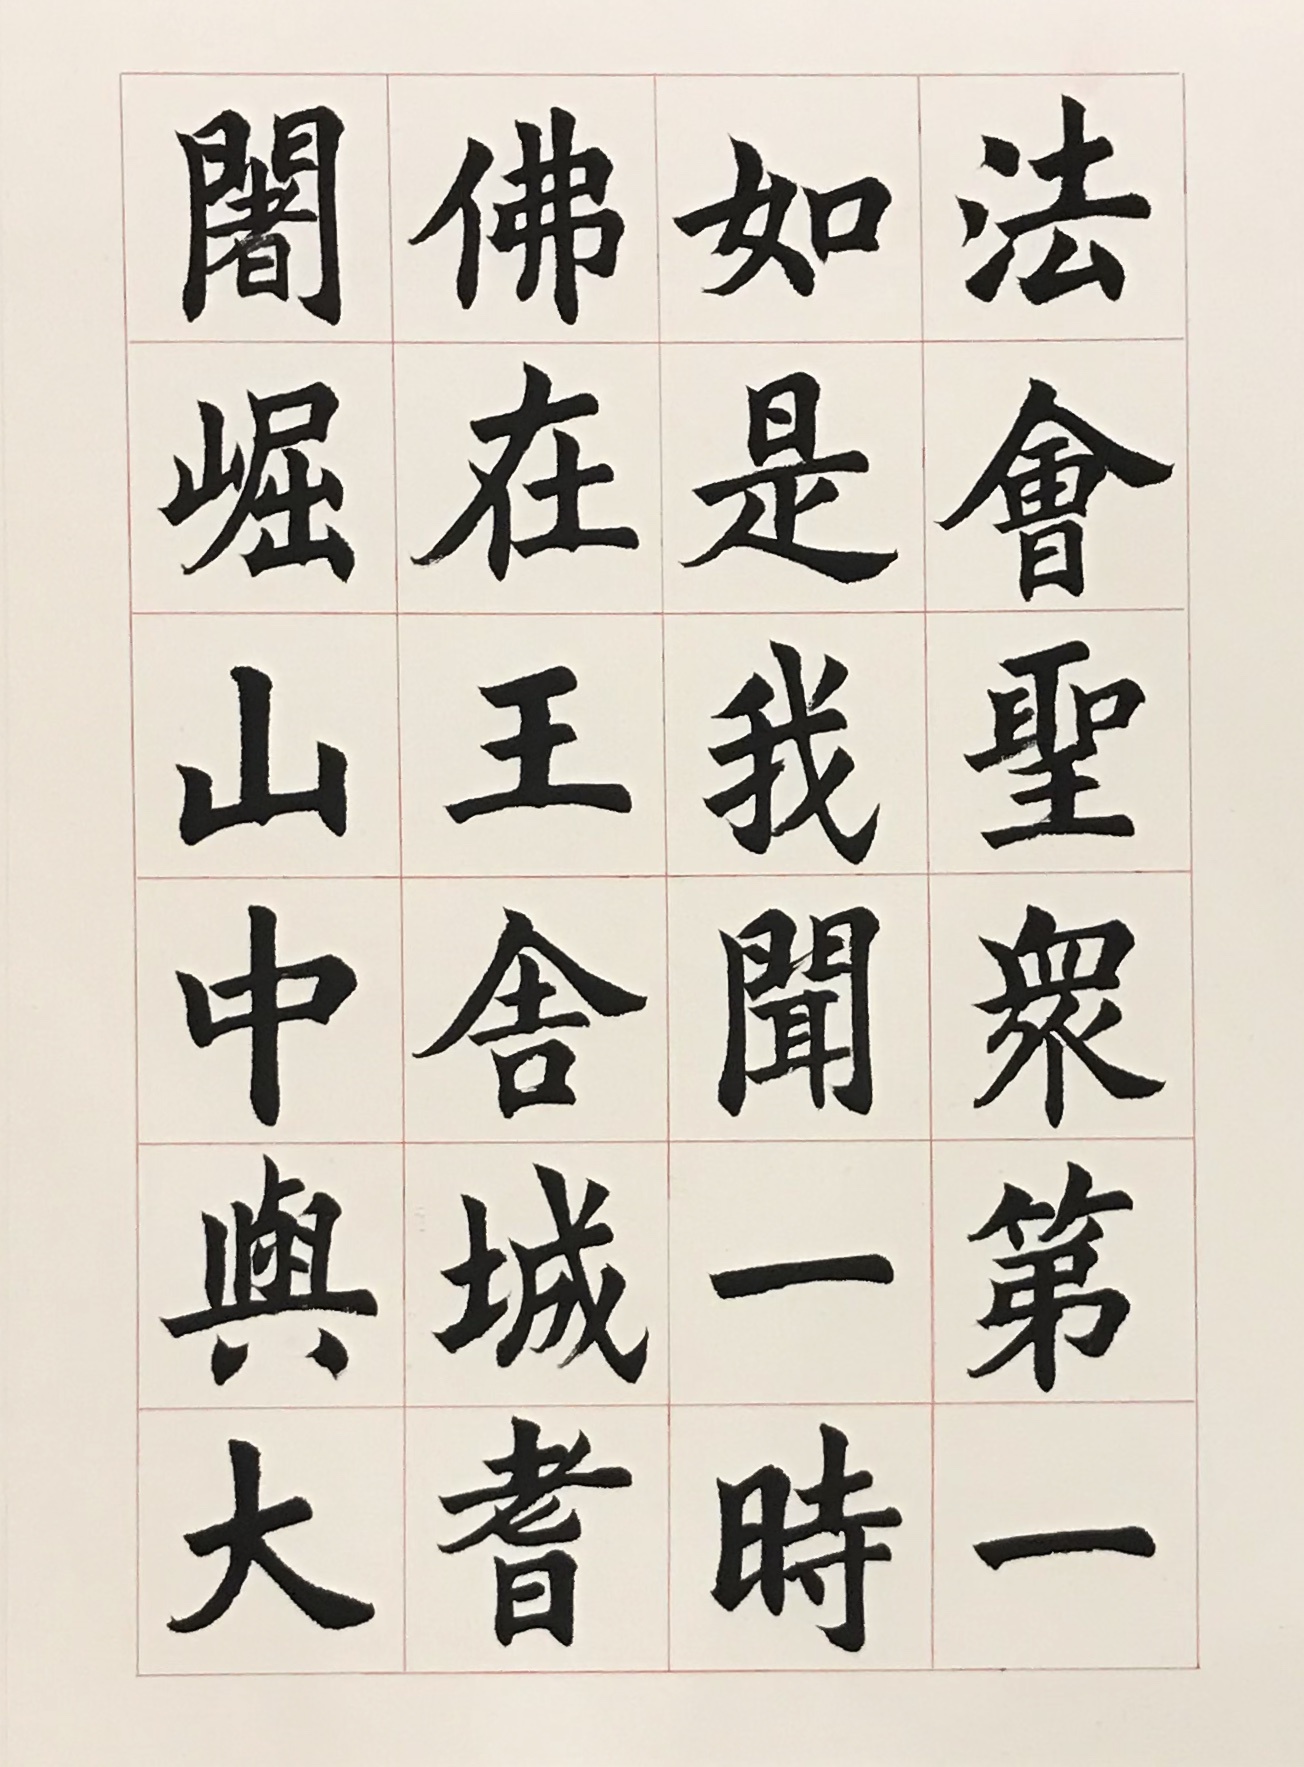 法會聖衆第一
如是我聞一時
佛在王舍城耆
闍崛山中與大